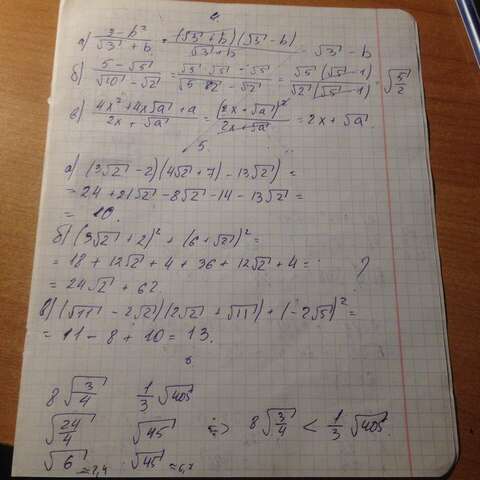 4.
а) (3 - b²)/(√3 + b) = ((√3 + b)(√3 - b))/(√3 + b) = √3 - b
б) (5 - √5)/(√10 - √2) = (√5 · √5 - √5)/(√5 · √2 - √2) = (√5 (√5 - 1))/(√2 (√5 - 1)) = √(5/2)
в) (4x² + 4x√a + a)/(2x + √a) = (2x + √a)²/(2x + √a) = 2x + √a
5.
а) (3√2 - 2)(4√2 + 7) - 13√2 =
= 24 + 21√2 - 8√2 - 14 - 13√2 =
= 10.
б) (3√2 + 2)² + (6 + √2)² =
= 18 + 12√2 + 4 + 36 + 12√2 + 4 = ?
= 24√2 + 62
в) (√11 - 2√2)(2√2 + √11) + (-2√5)² =
= 11 - 8 + 10 = 13.
6
8√(3/4) 1/3 √405
√(24/4) √45 => 8√(3/4) < 1/3 √405.
√6 = 2,4 √45 = 6,7